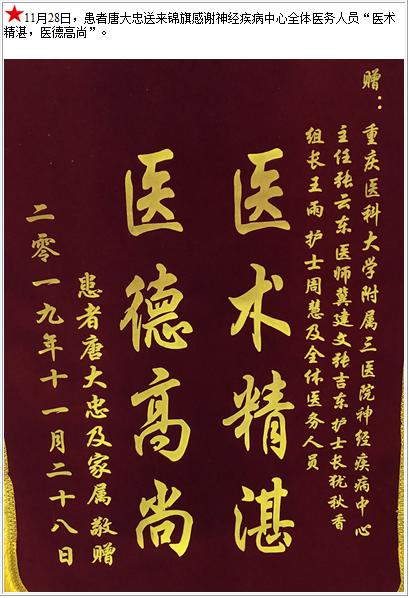 ★11月28日，患者唐大忠送来锦旗感谢神经疾病中心全体医务人员“医术
精湛，医德高尚”。
赠：
重庆医科大学附属三医院神经疾病中心
主任张云东医师冀建文张吉东护士长犹秋香
组长王雨护士周慧及全体医务人员
医术精湛
医德高尚
患者唐大忠及家属敬赠
二零一九年十一月二十八日